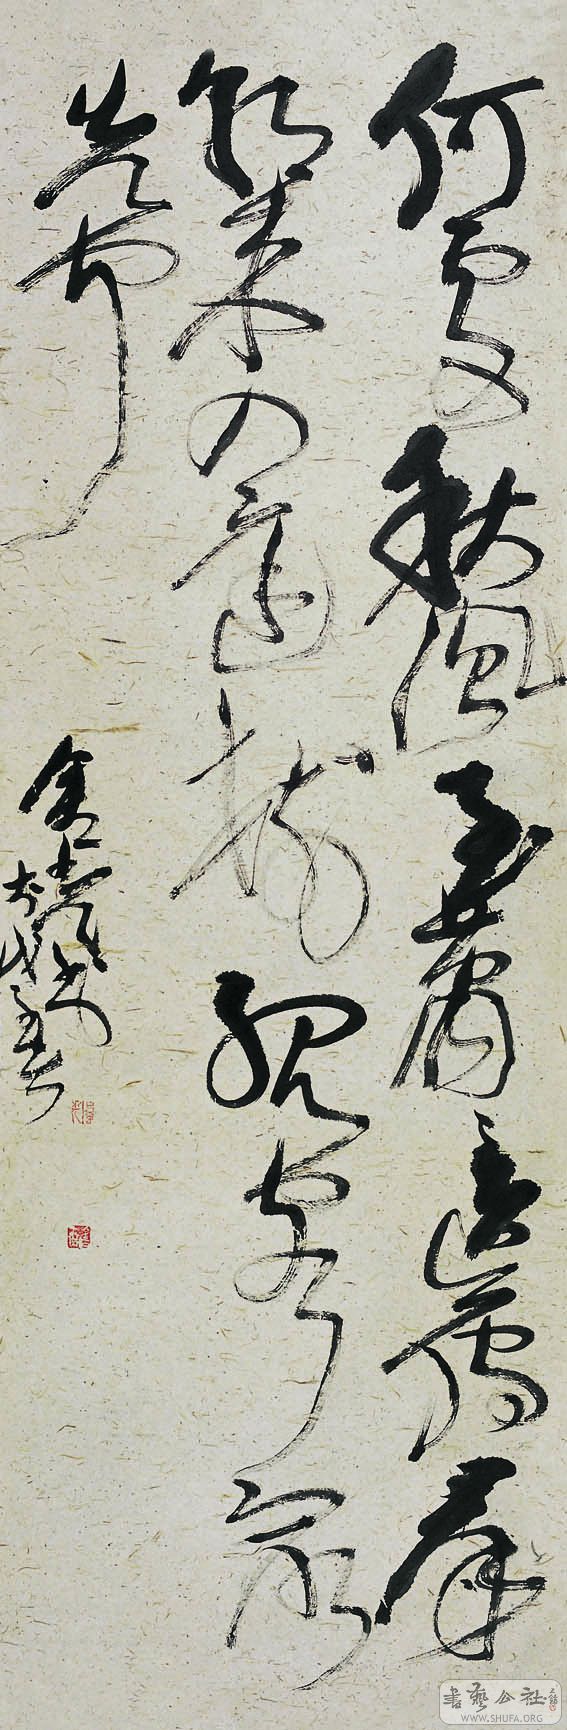 何處秋風至蕭蕭送雁羣
朝来入庭樹孤客最
先聞
書藝公社
WWW.SHUFA.ORG